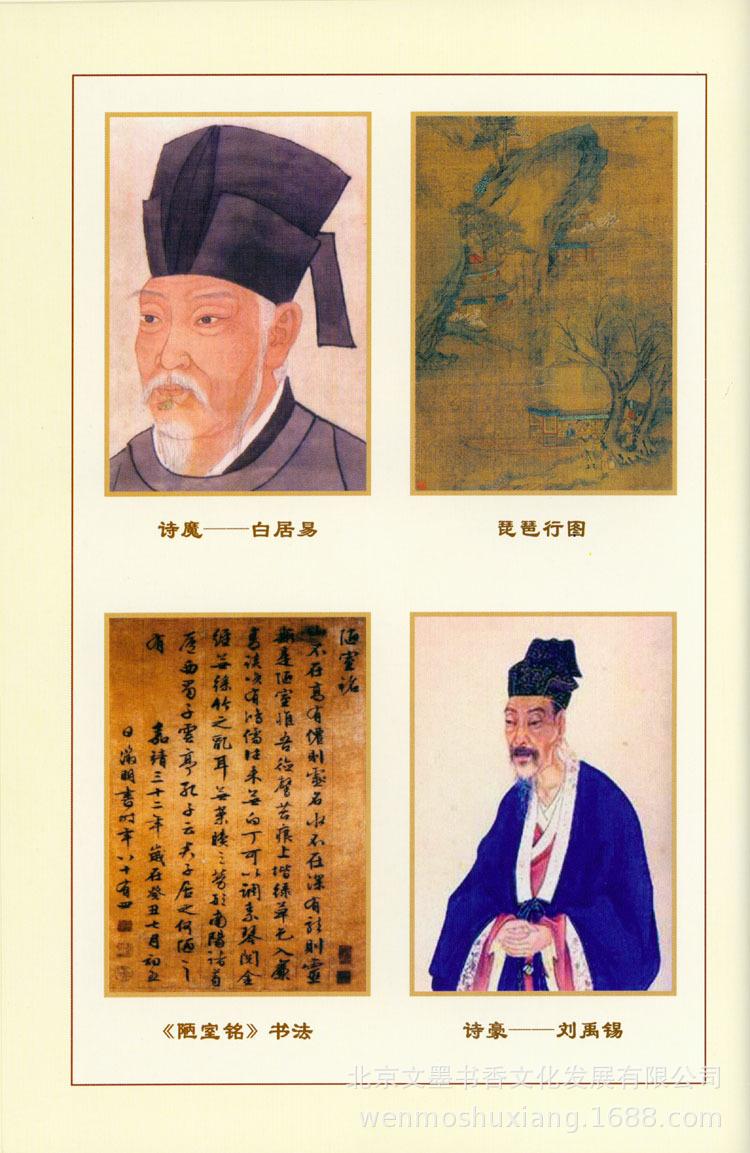 诗魔——白居易
琵琶行图
陋室銘
山不在高有僊則名水不在深有龍則靈
斯是陋室惟吾德馨苔痕上堦綠草色入簾
青談笑有鴻儒往來無白丁可以調素琴閱金
經無絲竹之亂耳無案牘之勞形南陽諸葛
廬西蜀子雲亭孔子云夫子居之何陋之
有
嘉靖三十二年歲在癸丑七月初五
日徵明書時年八十有四
《陋室铭》书法
诗豪——刘禹锡
北京文墨书香文化发展有限公司
wenmoshuxiang.1688.com